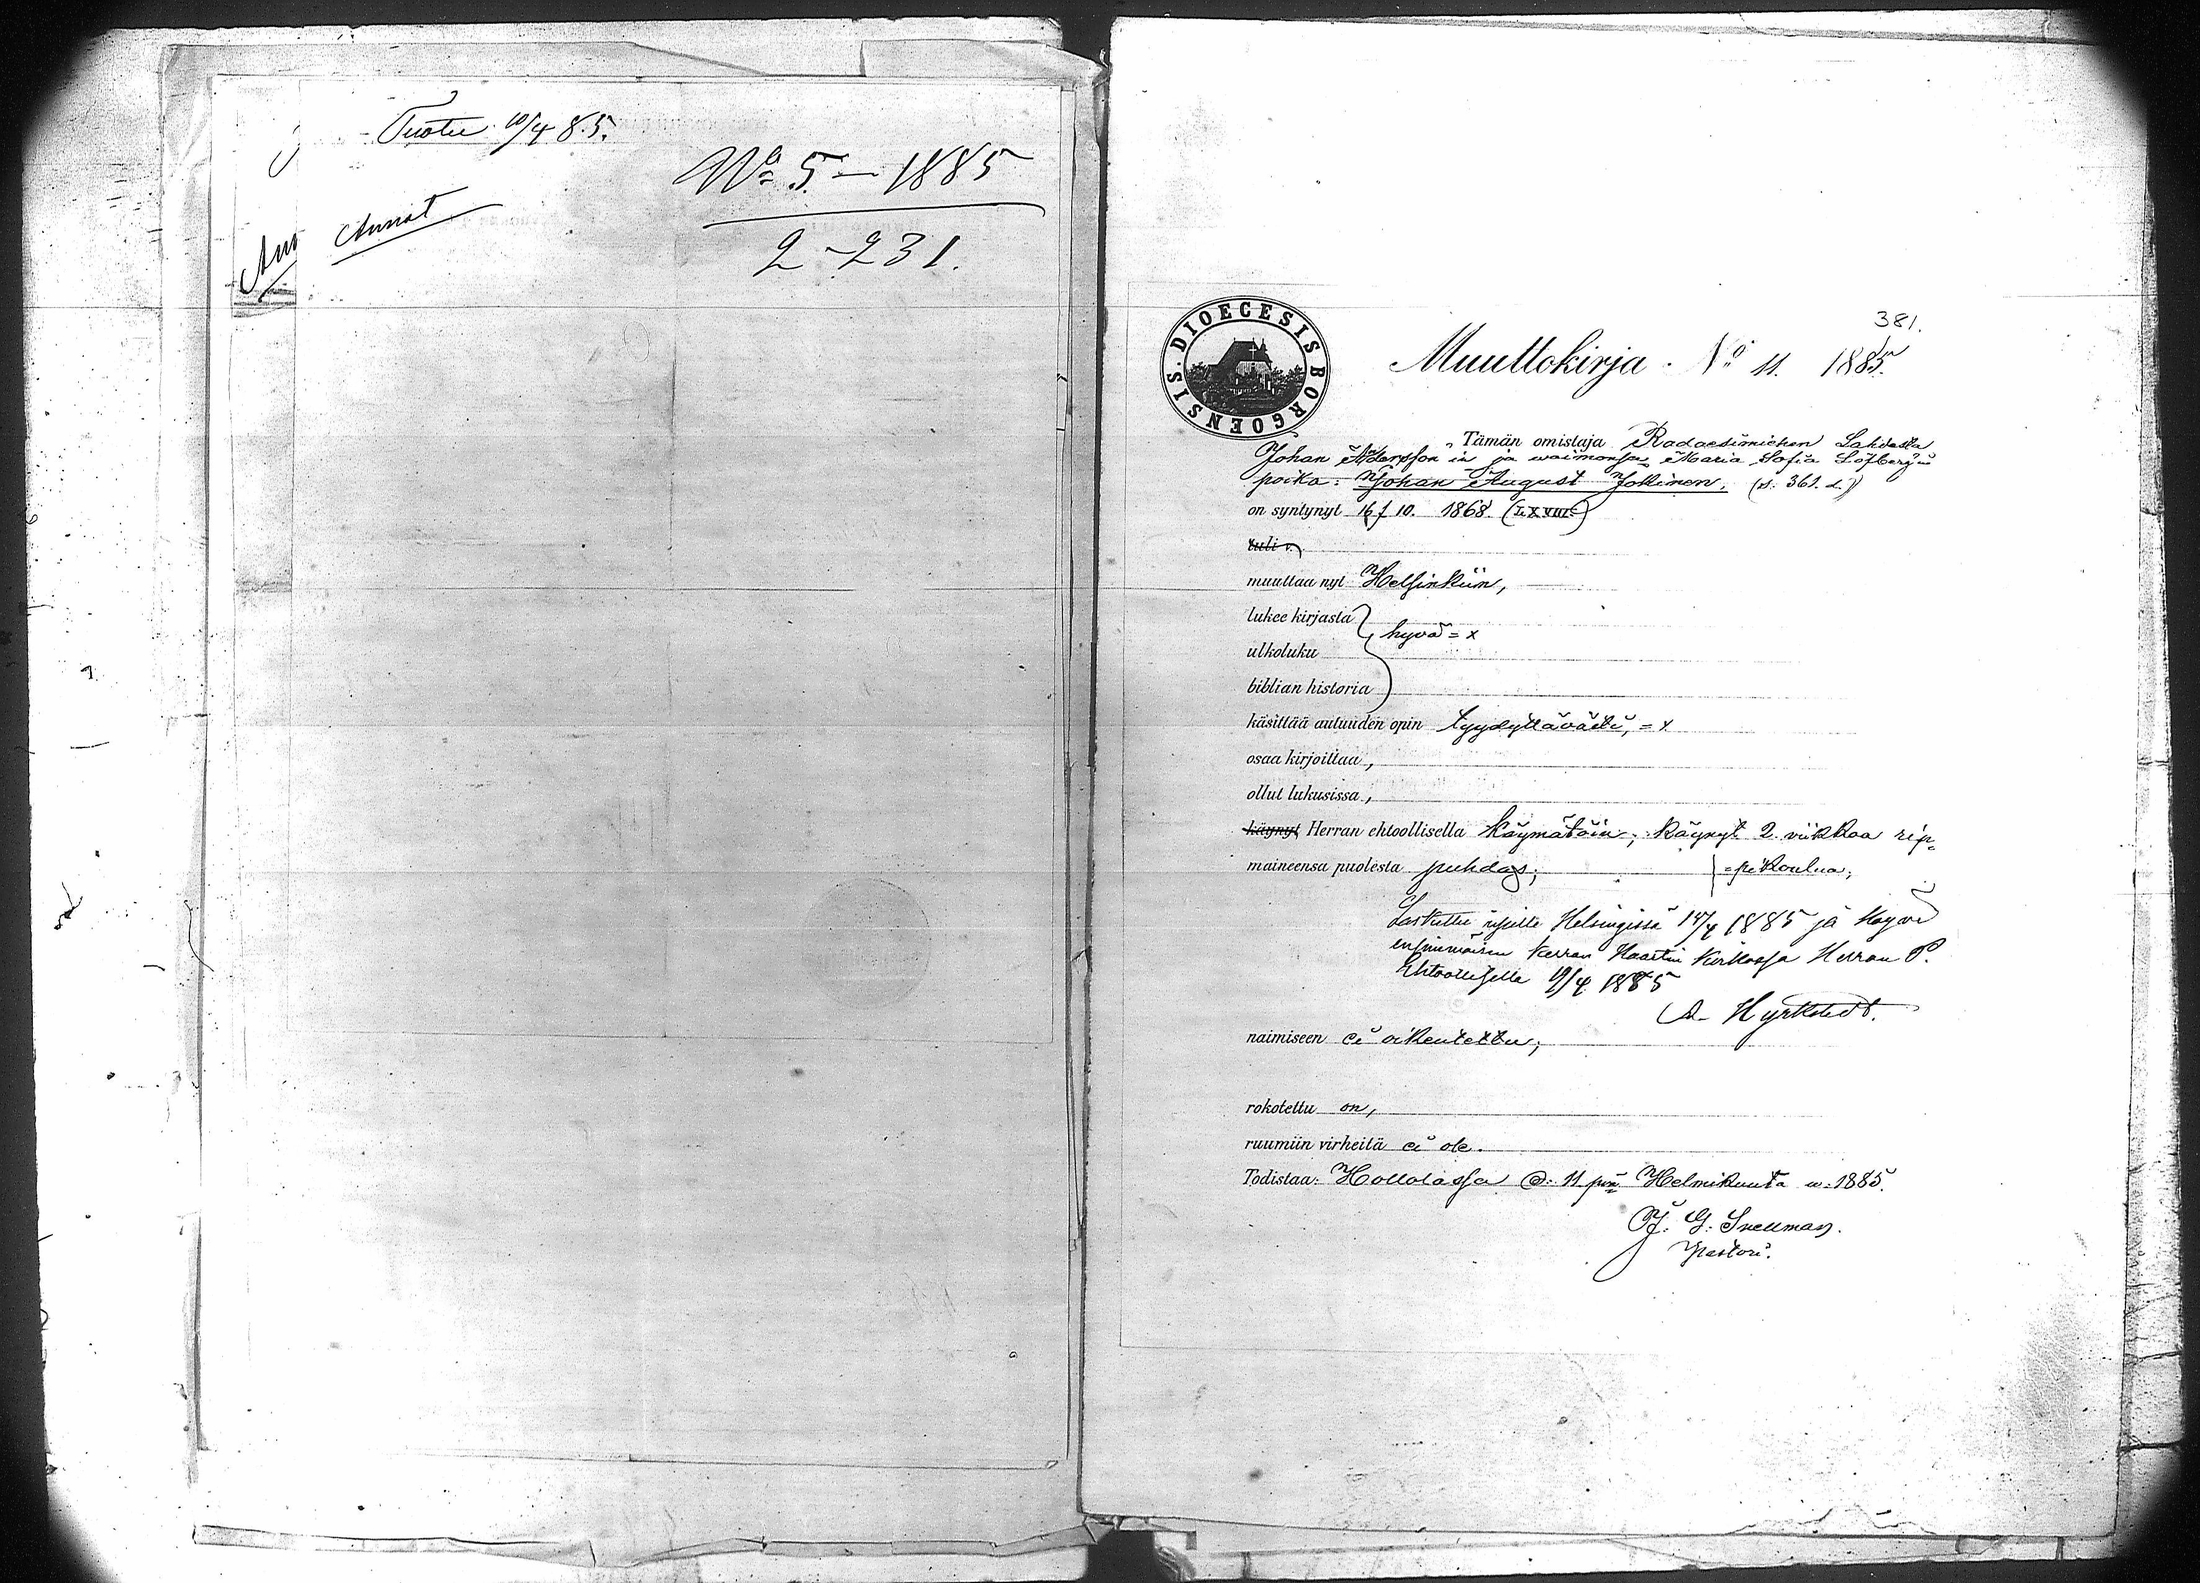 Tuotu 10/4 85.
Annot
No 5 — 1885
2-231.
381.
DIOECESIS BORGOENSIS.
Muuttokirja No 11. 1885.
Tämän omistaja Lahdesta
Johan in ja waimonsa Maria Sofia Löfberg'in
poika: Johan August Jokinen, (s. 361.)
on syntynyt 16/10. 1868. (LXVIII)
tuli
muuttaa nyt Helsinkiin,
lukee kirjasta
hyvä = x
ulkoluku
biblian historia
käsittää autuuden opin tyydyttävästi, = x
osaa kirjoittaa,
ollut lukusissa,
käynyt Herran ehtoollisella käymätöin; käynyt 2 viikkoa rip-
maineensa puolesta puhdas; =pikoulua;
Laskettu ripille Helsingissä 17/4 1885 ja käyvä
ensimmäisen kerran kirkossa Herran P.
Ehtoollisella 19/4 1885
A. Hyrkstedt.
naimiseen ei oikeutettu;
rokotettu on,
ruumiin virheitä ei ole.
Todistaa: Hollolassa 11 p:nä Helmikuuta w. 1885.
J. G. Snellman.
Pastori.